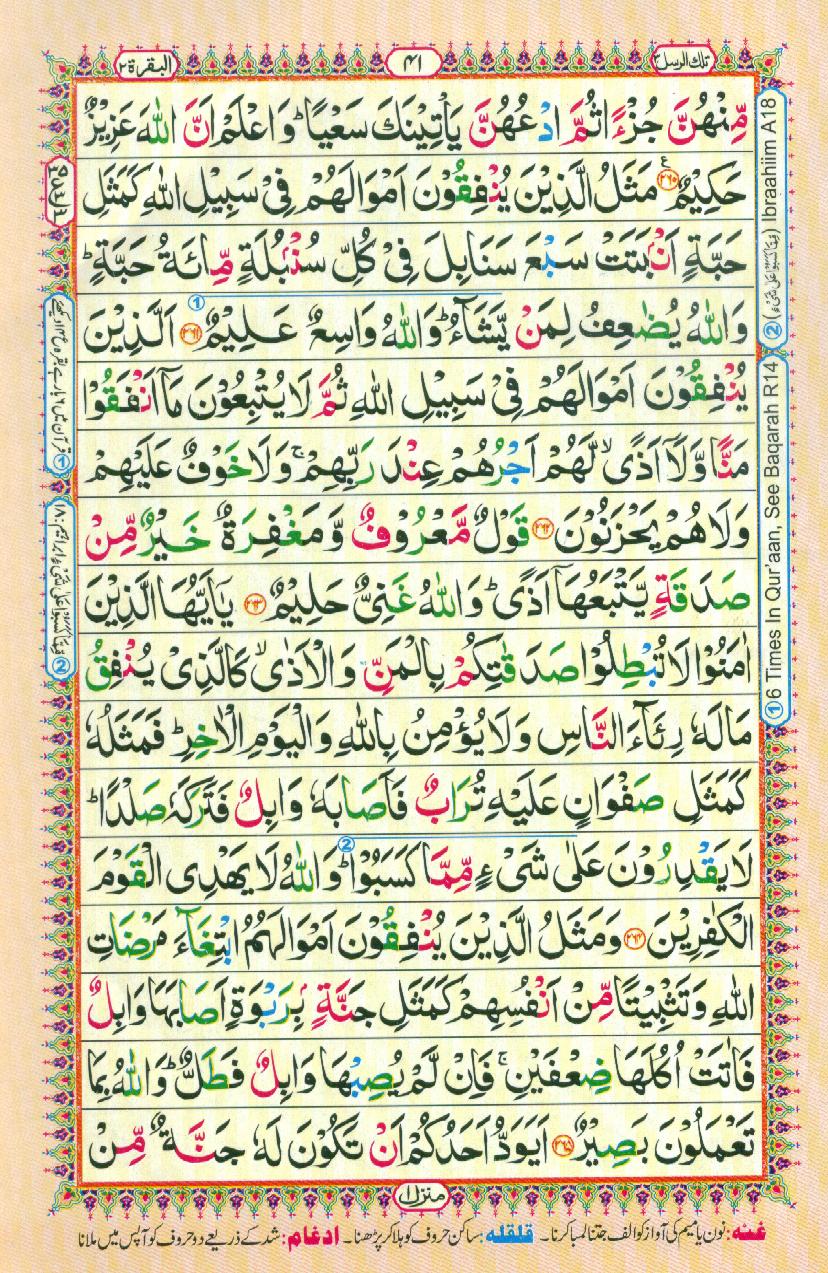 تلك الرسل ٣
٤١
البقرة ٢
مِّنۡهُنَّ جُزۡءًا ثُمَّ ادۡعُهُنَّ يَاۡتِيۡنَكَ سَعۡيًا ؕ وَاعۡلَمۡ اَنَّ اللّٰهَ عَزِيۡزٌ
حَكِيۡمٌ ﴿۲۶۰﴾ ع مَثَلُ الَّذِيۡنَ يُنۡفِقُوۡنَ اَمۡوَالَهُمۡ فِىۡ سَبِيۡلِ اللّٰهِ كَمَثَلِ
حَبَّةٍ اَنۡۢبَتَتۡ سَبۡعَ سَنَابِلَ فِىۡ كُلِّ سُنۡۢبُلَةٍ مِّائَةُ حَبَّةٍ ؕ
وَاللّٰهُ يُضٰعِفُ لِمَنۡ يَّشَآءُ ؕ وَاللّٰهُ وَاسِعٌ عَلِيۡمٌ ① ﴿۲۶۱﴾ اَلَّذِيۡنَ
يُنۡفِقُوۡنَ اَمۡوَالَهُمۡ فِىۡ سَبِيۡلِ اللّٰهِ ثُمَّ لَا يُتۡبِعُوۡنَ مَاۤ اَنۡفَقُوۡا
مَنًّا وَّلَاۤ اَذًىۙ لَّهُمۡ اَجۡرُهُمۡ عِنۡدَ رَبِّهِمۡۚ وَلَا خَوۡفٌ عَلَيۡهِمۡ
وَلَا هُمۡ يَحۡزَنُوۡنَ ﴿۲۶۲﴾ قَوۡلٌ مَّعۡرُوۡفٌ وَّمَغۡفِرَةٌ خَيۡرٌ مِّنۡ
صَدَقَةٍ يَّتۡبَعُهَاۤ اَذًىؕ وَاللّٰهُ غَنِىٌّ حَلِيۡمٌ ﴿۲۶۳﴾ يٰۤاَيُّهَا الَّذِيۡنَ
اٰمَنُوۡا لَا تُبۡطِلُوۡا صَدَقٰتِكُمۡ بِالۡمَنِّ وَالۡاَذٰىۙ كَالَّذِىۡ يُنۡفِقُ
مَالَهٗ رِئَآءَ النَّاسِ وَلَا يُؤۡمِنُ بِاللّٰهِ وَالۡيَوۡمِ الۡاٰخِرِؕ فَمَثَلُهٗ
كَمَثَلِ صَفۡوَانٍ عَلَيۡهِ تُرَابٌ فَاَصَابَهٗ وَابِلٌ فَتَرَكَهٗ صَلۡدًاؕ
لَا يَقۡدِرُوۡنَ عَلٰى شَىۡءٍ مِّمَّا كَسَبُوۡا ② ؕ وَاللّٰهُ لَا يَهۡدِى الۡقَوۡمَ
الۡكٰفِرِيۡنَ ﴿۲۶۴﴾ وَمَثَلُ الَّذِيۡنَ يُنۡفِقُوۡنَ اَمۡوَالَهُمُ ابۡتِغَآءَ مَرۡضَاتِ
اللّٰهِ وَتَثۡبِيۡتًا مِّنۡ اَنۡفُسِهِمۡ كَمَثَلِ جَنَّةٍۢ بِرَبۡوَةٍ اَصَابَهَا وَابِلٌ
فَاٰتَتۡ اُكُلَهَا ضِعۡفَيۡنِۚ فَاِنۡ لَّمۡ يُصِبۡهَا وَابِلٌ فَطَلٌّؕ وَاللّٰهُ بِمَا
تَعۡمَلُوۡنَ بَصِيۡرٌ ﴿۲۶۵﴾ اَيَوَدُّ اَحَدُكُمۡ اَنۡ تَكُوۡنَ لَهٗ جَنَّةٌ مِّنۡ
منزل ۱
غنہ: نون یا میم کی آواز کو الف جتنا لمبا کرنا۔ قلقلہ: ساکن حروف کو ہلا کر پڑھنا۔ ادغام: شد کے ذریعے دو حروف کو آپس میں ملانا
① 6 Times In Qur'aan, See Baqarah R14
② Ibraahiim A18